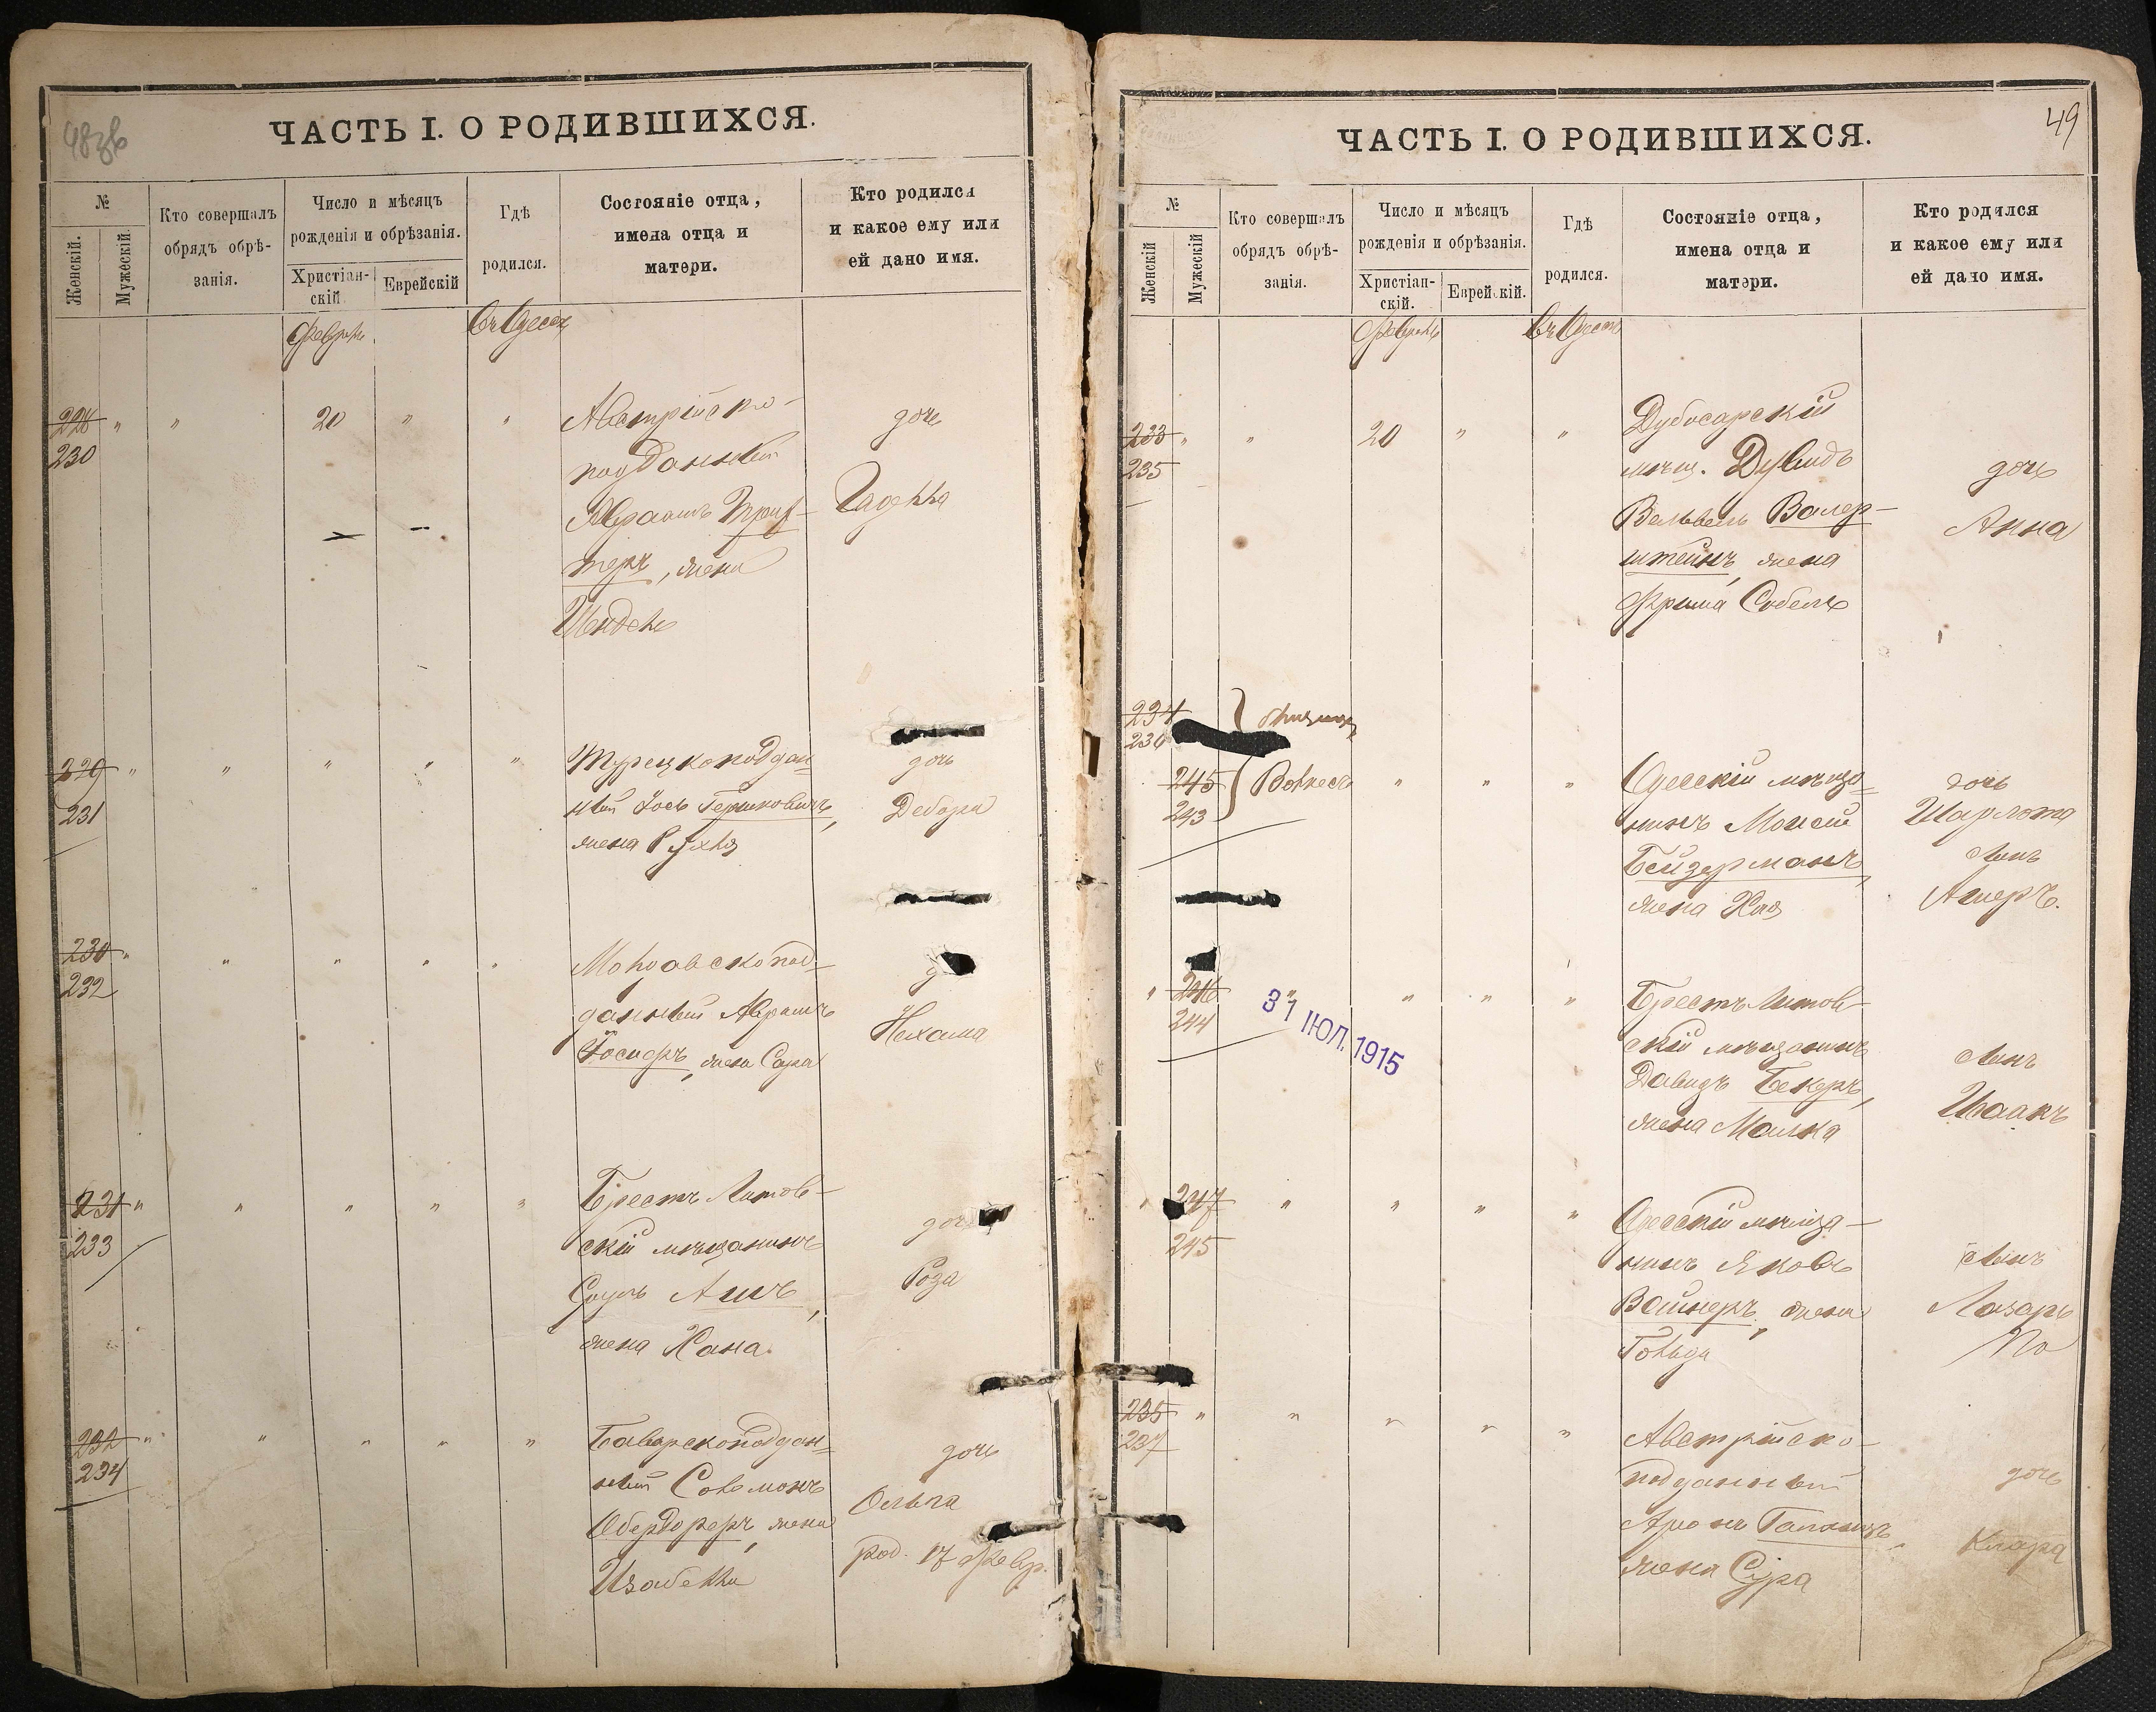 48зв
ЧАСТЬ I. О РОДИВШИХСЯ.
№
Женскій.
Мужескій.
Кто совершалъ
обрядъ обрѣ-
занія.
Число и мѣсяцъ
рожденія и обрѣзанія.
Христіан-
скій.
Еврейскій
Гдѣ
родился.
Состояніе отца,
имена отца и
матери.
Кто родился
и какое ему или
ей дано имя.
Февраль
Въ Одессѣ
228 " " 20 " " Австрійско-
230
подданный
дочь
Авраамъ
теръ, жена
229 " " " " " " Турецкоподдан=
231
ный Іось Гершковичъ,
жена Рухля
дочь
Дебора
230 " " " " " Молдавскопод-
232
данный Абрамъ
жена Сура
Нехама
231 " " " " " " Брестъ Литов-
233
скій мѣщанинъ
Сруль Ашъ,
жена Хана.
дочь
Роза
232 " " " " " Баварскоподдан=
234
ный Соломонъ
Обердорферъ, жена
Изабелла
дочь
Ольга
род. 17 Февр.
49
ЧАСТЬ I. О РОДИВШИХСЯ.
№
Женскій
Мужескій
Кто совершалъ
обрядъ обрѣ-
занія.
Число и мѣсяцъ
рожденія и обрѣзанія.
Христіан-
скій.
Еврейскій.
Гдѣ
родился.
Состояніе отца,
имена отца и
матери.
Кто родился
и какое ему или
ей дано имя.
Февраль
Въ Одессѣ
233 " " 20 " " Дубосарскій
235
мѣщ. Дувидъ
Вольвель Валер-
штейнъ, жена
Фрима Собель
дочь
Анна
234
236
близнецы
245
243
" " " Одесскій мѣща=
нинъ Моисей
Бейдерманъ,
жена Хая
дочь
Шарлота
сынъ
Ашеръ.
" 246 " " " " Брестъ Литов-
244
31 ІЮЛ. 1915
скій мѣщанинъ
Давидъ Бекеръ,
жена Малка
сынъ
Исаакъ
" 247 " " " " Одесскій мѣща-
245
нинъ Яковъ
Вайнеръ, жена
Гольда
сынъ
Лазарь
235 " " " " " Австрійско-
237
подданный
жена Сура
дочь
Клара